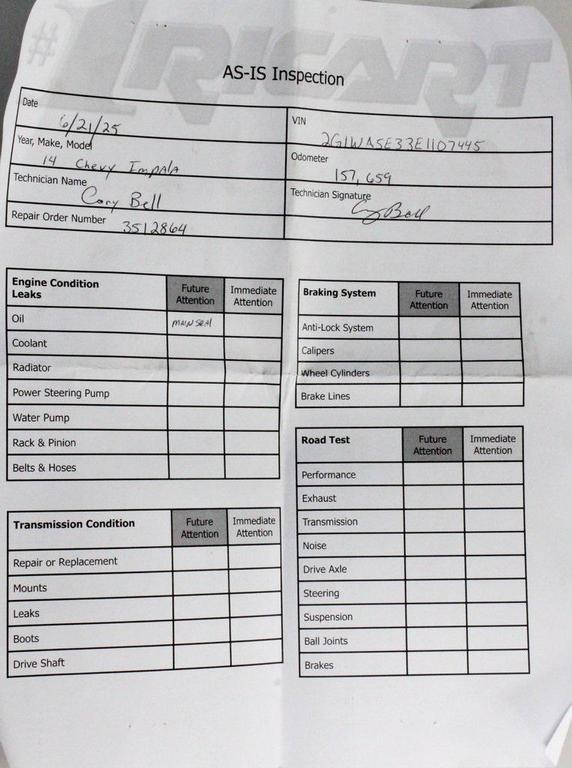 #1 RICART
AS-IS Inspection
Date
6/21/25
VIN
2G1WA5E33E1107445
Year, Make, Model
14 Chevy Impala
Odometer
157,659
Technician Name
Cory Bell
Technician Signature
Cory Bell
Repair Order Number
3512864
Engine Condition
Leaks
Future
Attention
Immediate
Attention
Oil
MAIN SEAL
Coolant
Radiator
Power Steering Pump
Water Pump
Rack & Pinion
Belts & Hoses
Braking System
Future
Attention
Immediate
Attention
Anti-Lock System
Calipers
Wheel Cylinders
Brake Lines
Transmission Condition
Future
Attention
Immediate
Attention
Repair or Replacement
Mounts
Leaks
Boots
Drive Shaft
Road Test
Future
Attention
Immediate
Attention
Performance
Exhaust
Transmission
Noise
Drive Axle
Steering
Suspension
Ball Joints
Brakes